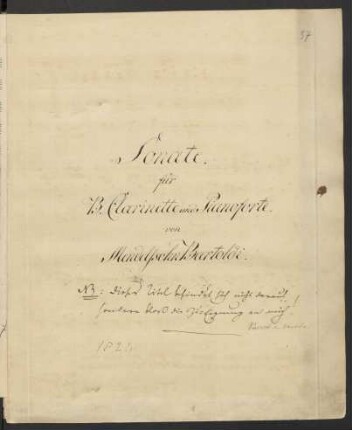 37
Sonate.
für
B. Clarinette und Pianoforte.
von
Mendelssohn Bartholdi.
NB: Dieser Titel befindet sich nicht darauf,
sondern bloß die Zueignung an mich!
1824